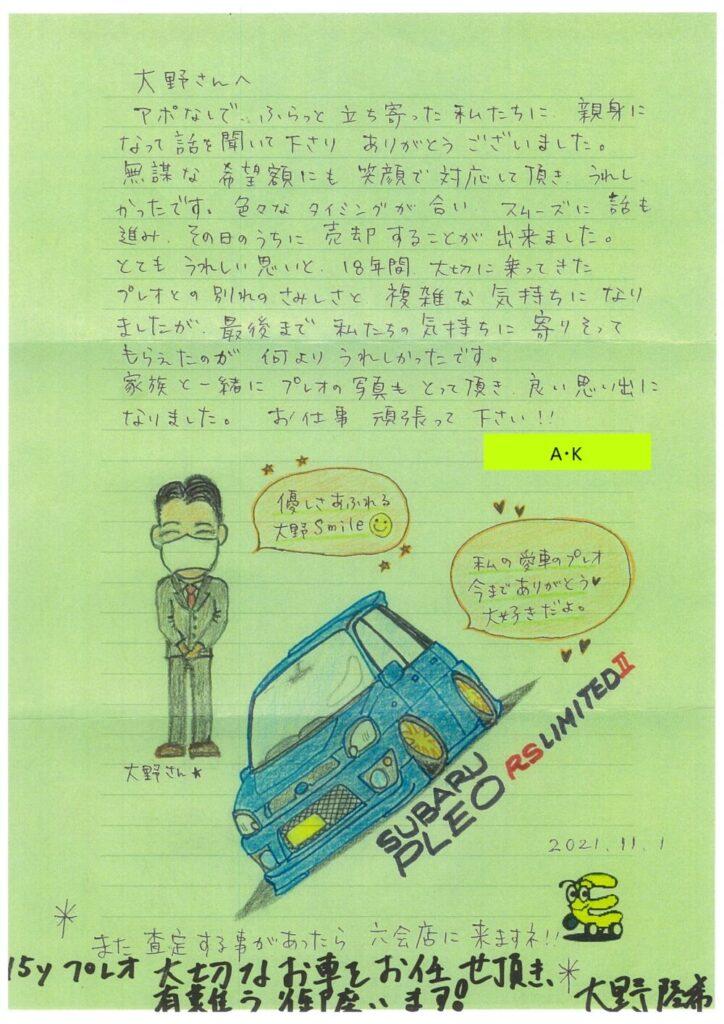 大野さんへ
アポなしで、ふらっと 立ち寄った 私たちに、親身に
なって話を聞いて下さり ありがとう ございました。
無謀な 希望額にも 笑顔で 対応して頂き、うれし
かったです。色々な タイミングが 合い、スムーズに 話も
進み、その日のうちに 売却することが 出来ました。
とても うれしい思いと、18年間 大切に乗ってきた
プレオとの別れのさみしさと 複雑な 気持ちになり
ましたが、最後まで 私たちの気持ちに 寄りそって
もらえたのが 何より うれしかったです。
家族と一緒に プレオの写真も とって頂き、良い思い出に
なりました。 お仕事 頑張って 下さい!!
A・K
優しさあふれる
大野Smile
私の愛車のプレオ
今までありがとう♥
大好きだよ。
大野さん★
SUBARU
PLEO
RS LIMITED II
2021.11.1
また 査定する事があったら 六会店に 来ますネ!!
15y プレオ 大切なお車をお任せ頂き、
有難う御座います!
大野